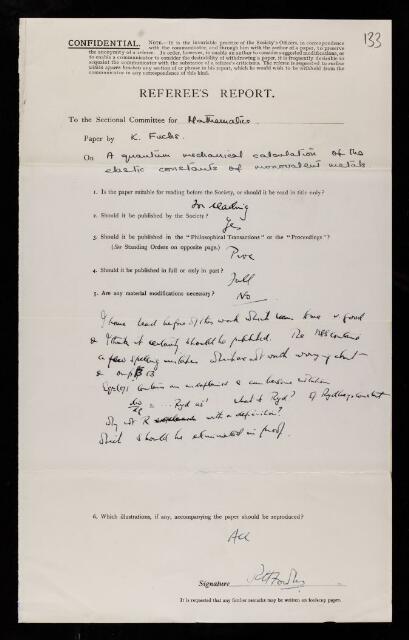 133
CONFIDENTIAL. NOTE.—It is the invariable practice of the Society's Officers, in correspondence
with the communicator, and through him with the author of a paper, to preserve
the anonymity of a referee. In order, however, to enable an author to consider suggested modifications, or
to enable a communicator to consider the desirability of withdrawing a paper, it is frequently desirable to
acquaint the communicator with the substance of a referee's criticisms. The referee is requested to enclose
within square brackets any section of or phrase in his report, which he would wish to be withheld from the
communicator in any correspondence of this kind.
REFEREE'S REPORT.
To the Sectional Committee for Mathematics
Paper by K. Fuchs.
On A quantum mechanical calculation of the
elastic constants of monovalent metals
1. Is the paper suitable for reading before the Society, or should it be read in title only?
For reading
2. Should it be published by the Society?
Yes
3. Should it be published in the "Philosophical Transactions" or the "Proceedings"?
(See Standing Orders on opposite page.)
Proc
4. Should it be published in full or only in part?
Full
5. Are any material modifications necessary?
No
I have heard before of this work which seems true & good
& I think it certainly should be published. The MSS contains
a few spelling mistakes which are not worth worrying about
& on p 13
contain an unexplained &
= ... Ryd as' what is Ryd? if Rydbergs constant
Why not R with a definition?
which should be eliminated in proof.
6. Which illustrations, if any, accompanying the paper should be reproduced?
All
Signature RHFowler
It is requested that any further remarks may be written on foolscap paper.